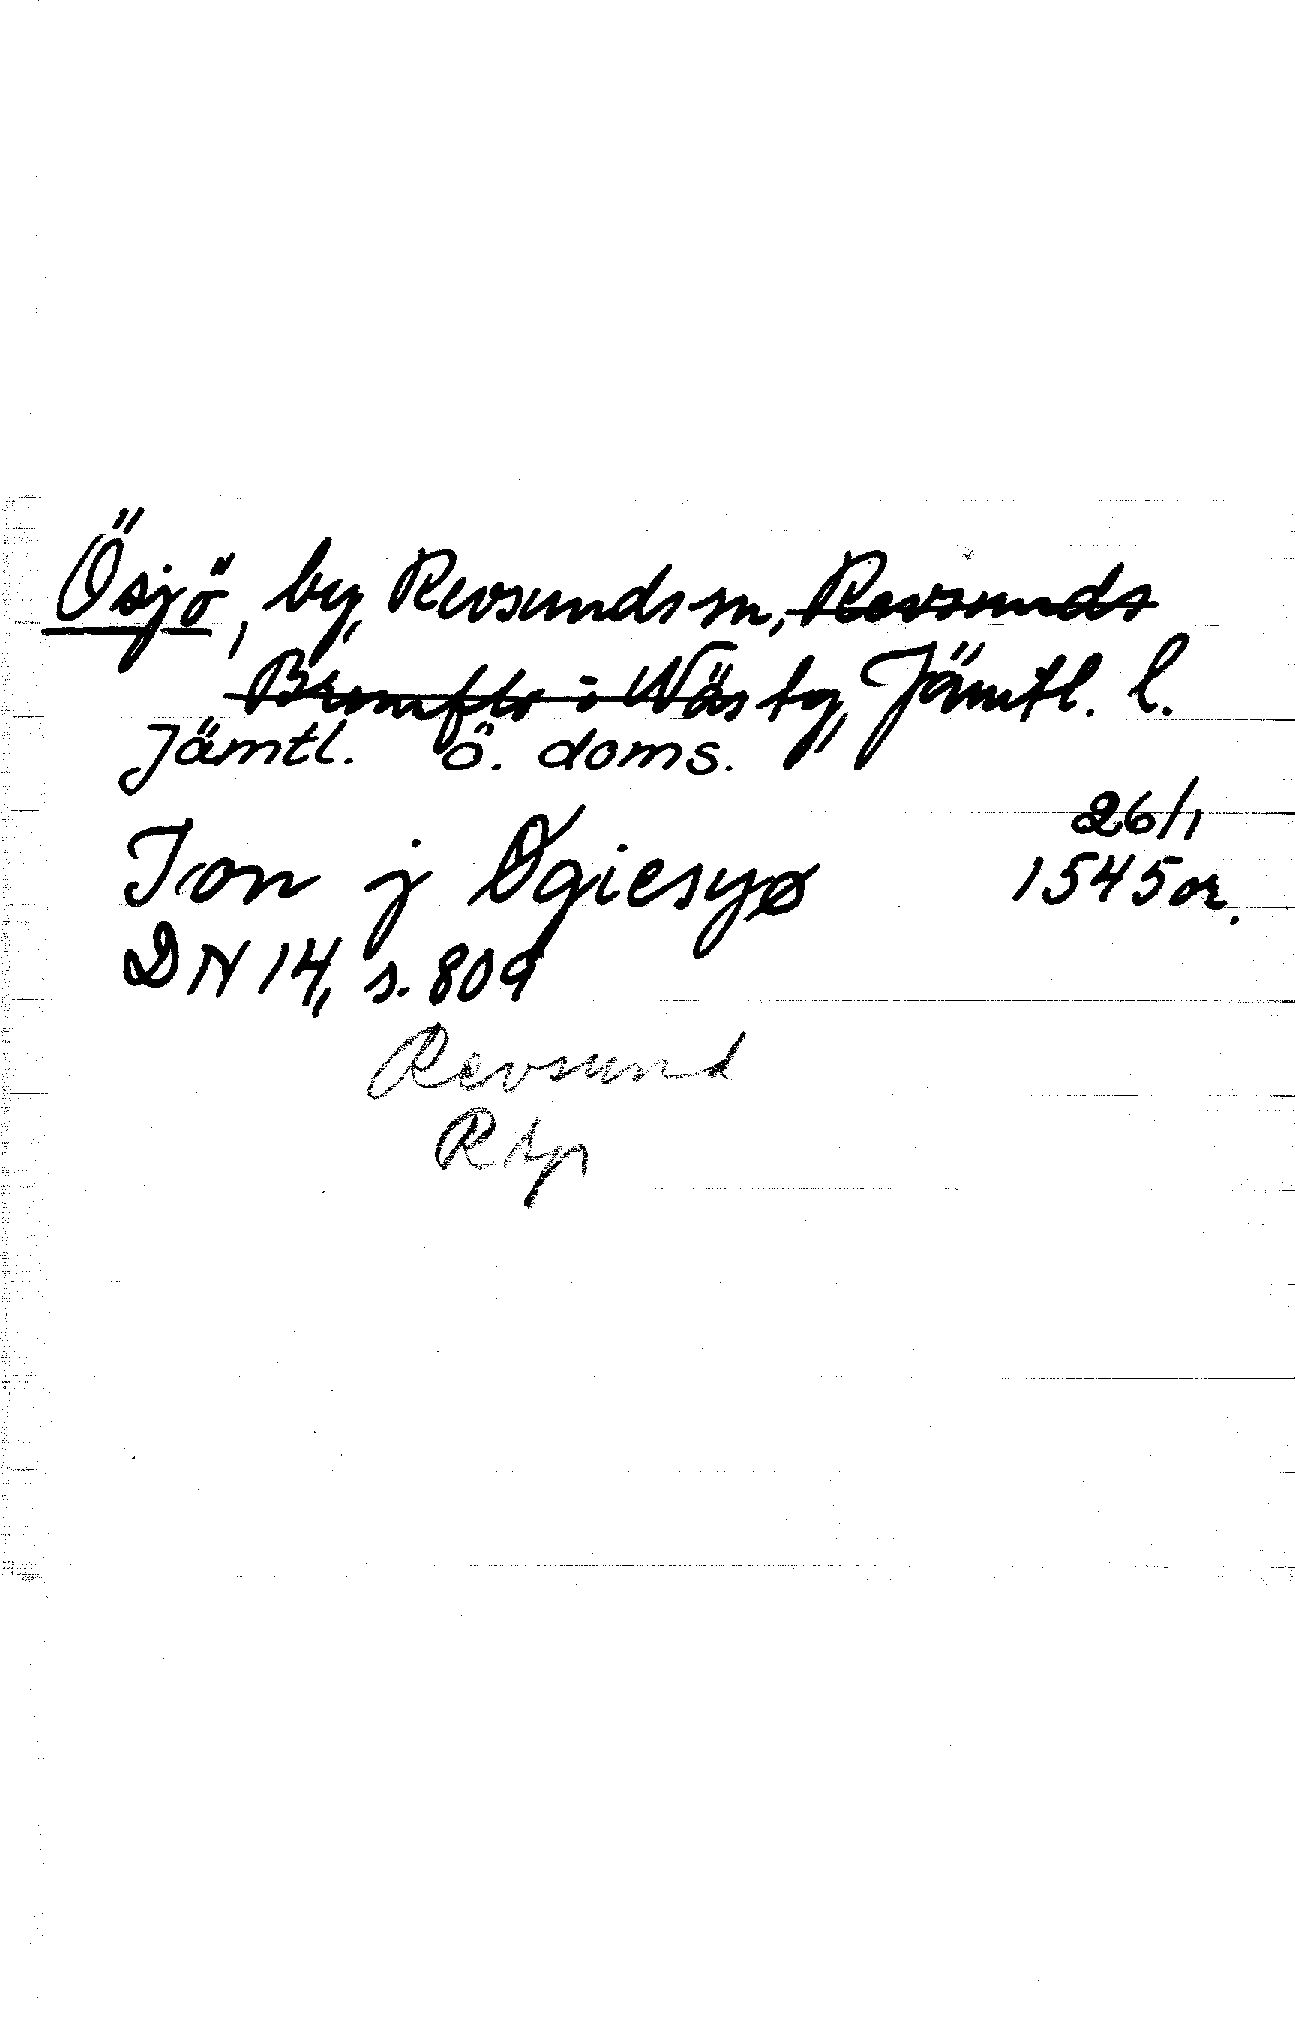 Ösjö, by, Revsunds sn, Revsunds
Brunflo o Näs tg, Jämtl. l.
Jämtl. ö. doms.
26/1
Jon j Øgiesyø 1545 or.
DN 14, s. 809
Revsund